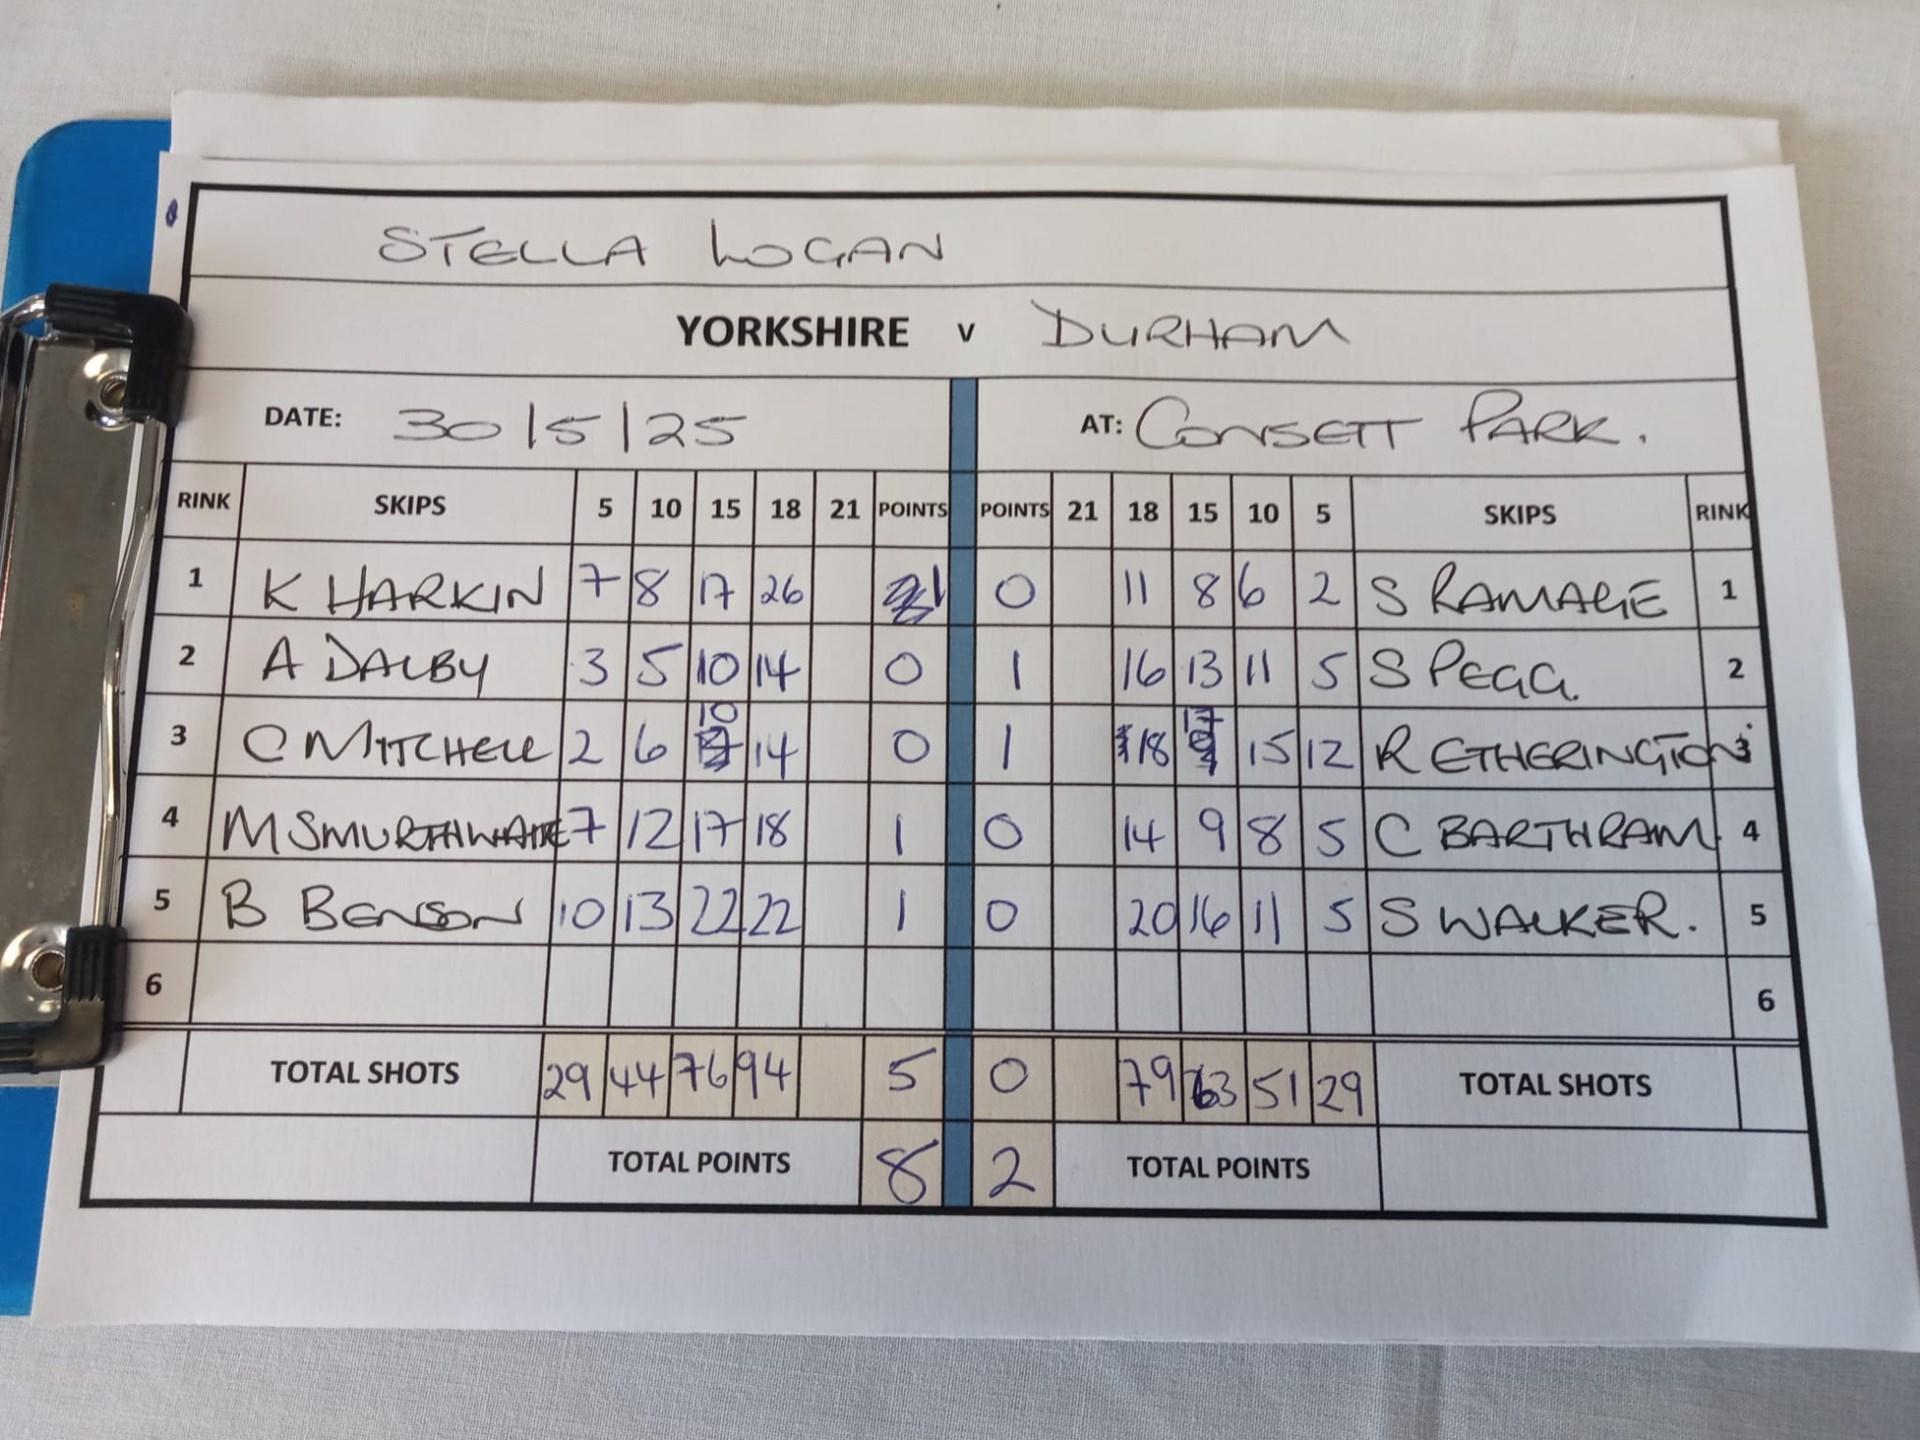 STELLA LOGAN
YORKSHIRE v DURHAM
DATE: 30/5/25 AT: CONSETT PARK.
RINK SKIPS 5 10 15 18 21 POINTS POINTS 21 18 15 10 5 SKIPS RINK
1 K HARKIN 7 8 17 26 1 0 11 8 6 2 S RAMAGE 1
2 A DALBY 3 5 10 14 0 1 16 13 11 5 S PEGG. 2
3 C MITCHELL 2 6 10 14 0 1 18 17 15 12 R ETHERINGTON 3
4 M SMURTHWAITE 7 12 17 18 1 0 14 9 8 5 C BARTHRAM 4
5 B BENSON 10 13 22 22 1 0 20 16 11 5 S WALKER. 5
6 6
TOTAL SHOTS 29 44 76 94 5 0 79 63 51 29 TOTAL SHOTS
TOTAL POINTS 8 2 TOTAL POINTS